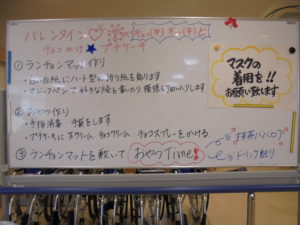 バレンタイン♡
チョコかけ★プチケーキ
①ランチョンマット作り
・白い台紙にハート型の飾り紙を貼ります
・マジックペンで好きな絵を書いたり模様を描いたりします
②おやつ作り
・手指消毒 手袋をします
・プチケーキに生クリーム チョコクリーム・チョコスプレーをかける
③ランチョンマットを敷いておやつTime!!
マスクの
着用を!!
お願い致します
抹茶ババロア
ドリンク配り